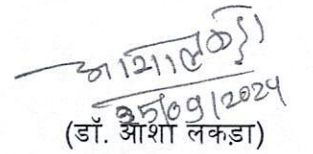 आशा लकड़ा
25/09/2024
(डॉ. आशा लकड़ा)